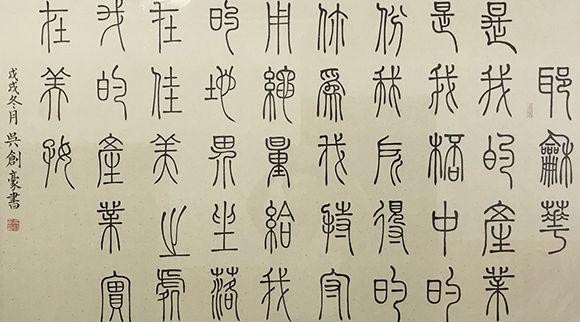 耶龢華
是我的產業
是我桮中的
份我所得的
你爲我持守
用繩量給我
的地界坐落
在佳美之處
我的產業實
在美好
戊戌冬月 吳創豪書